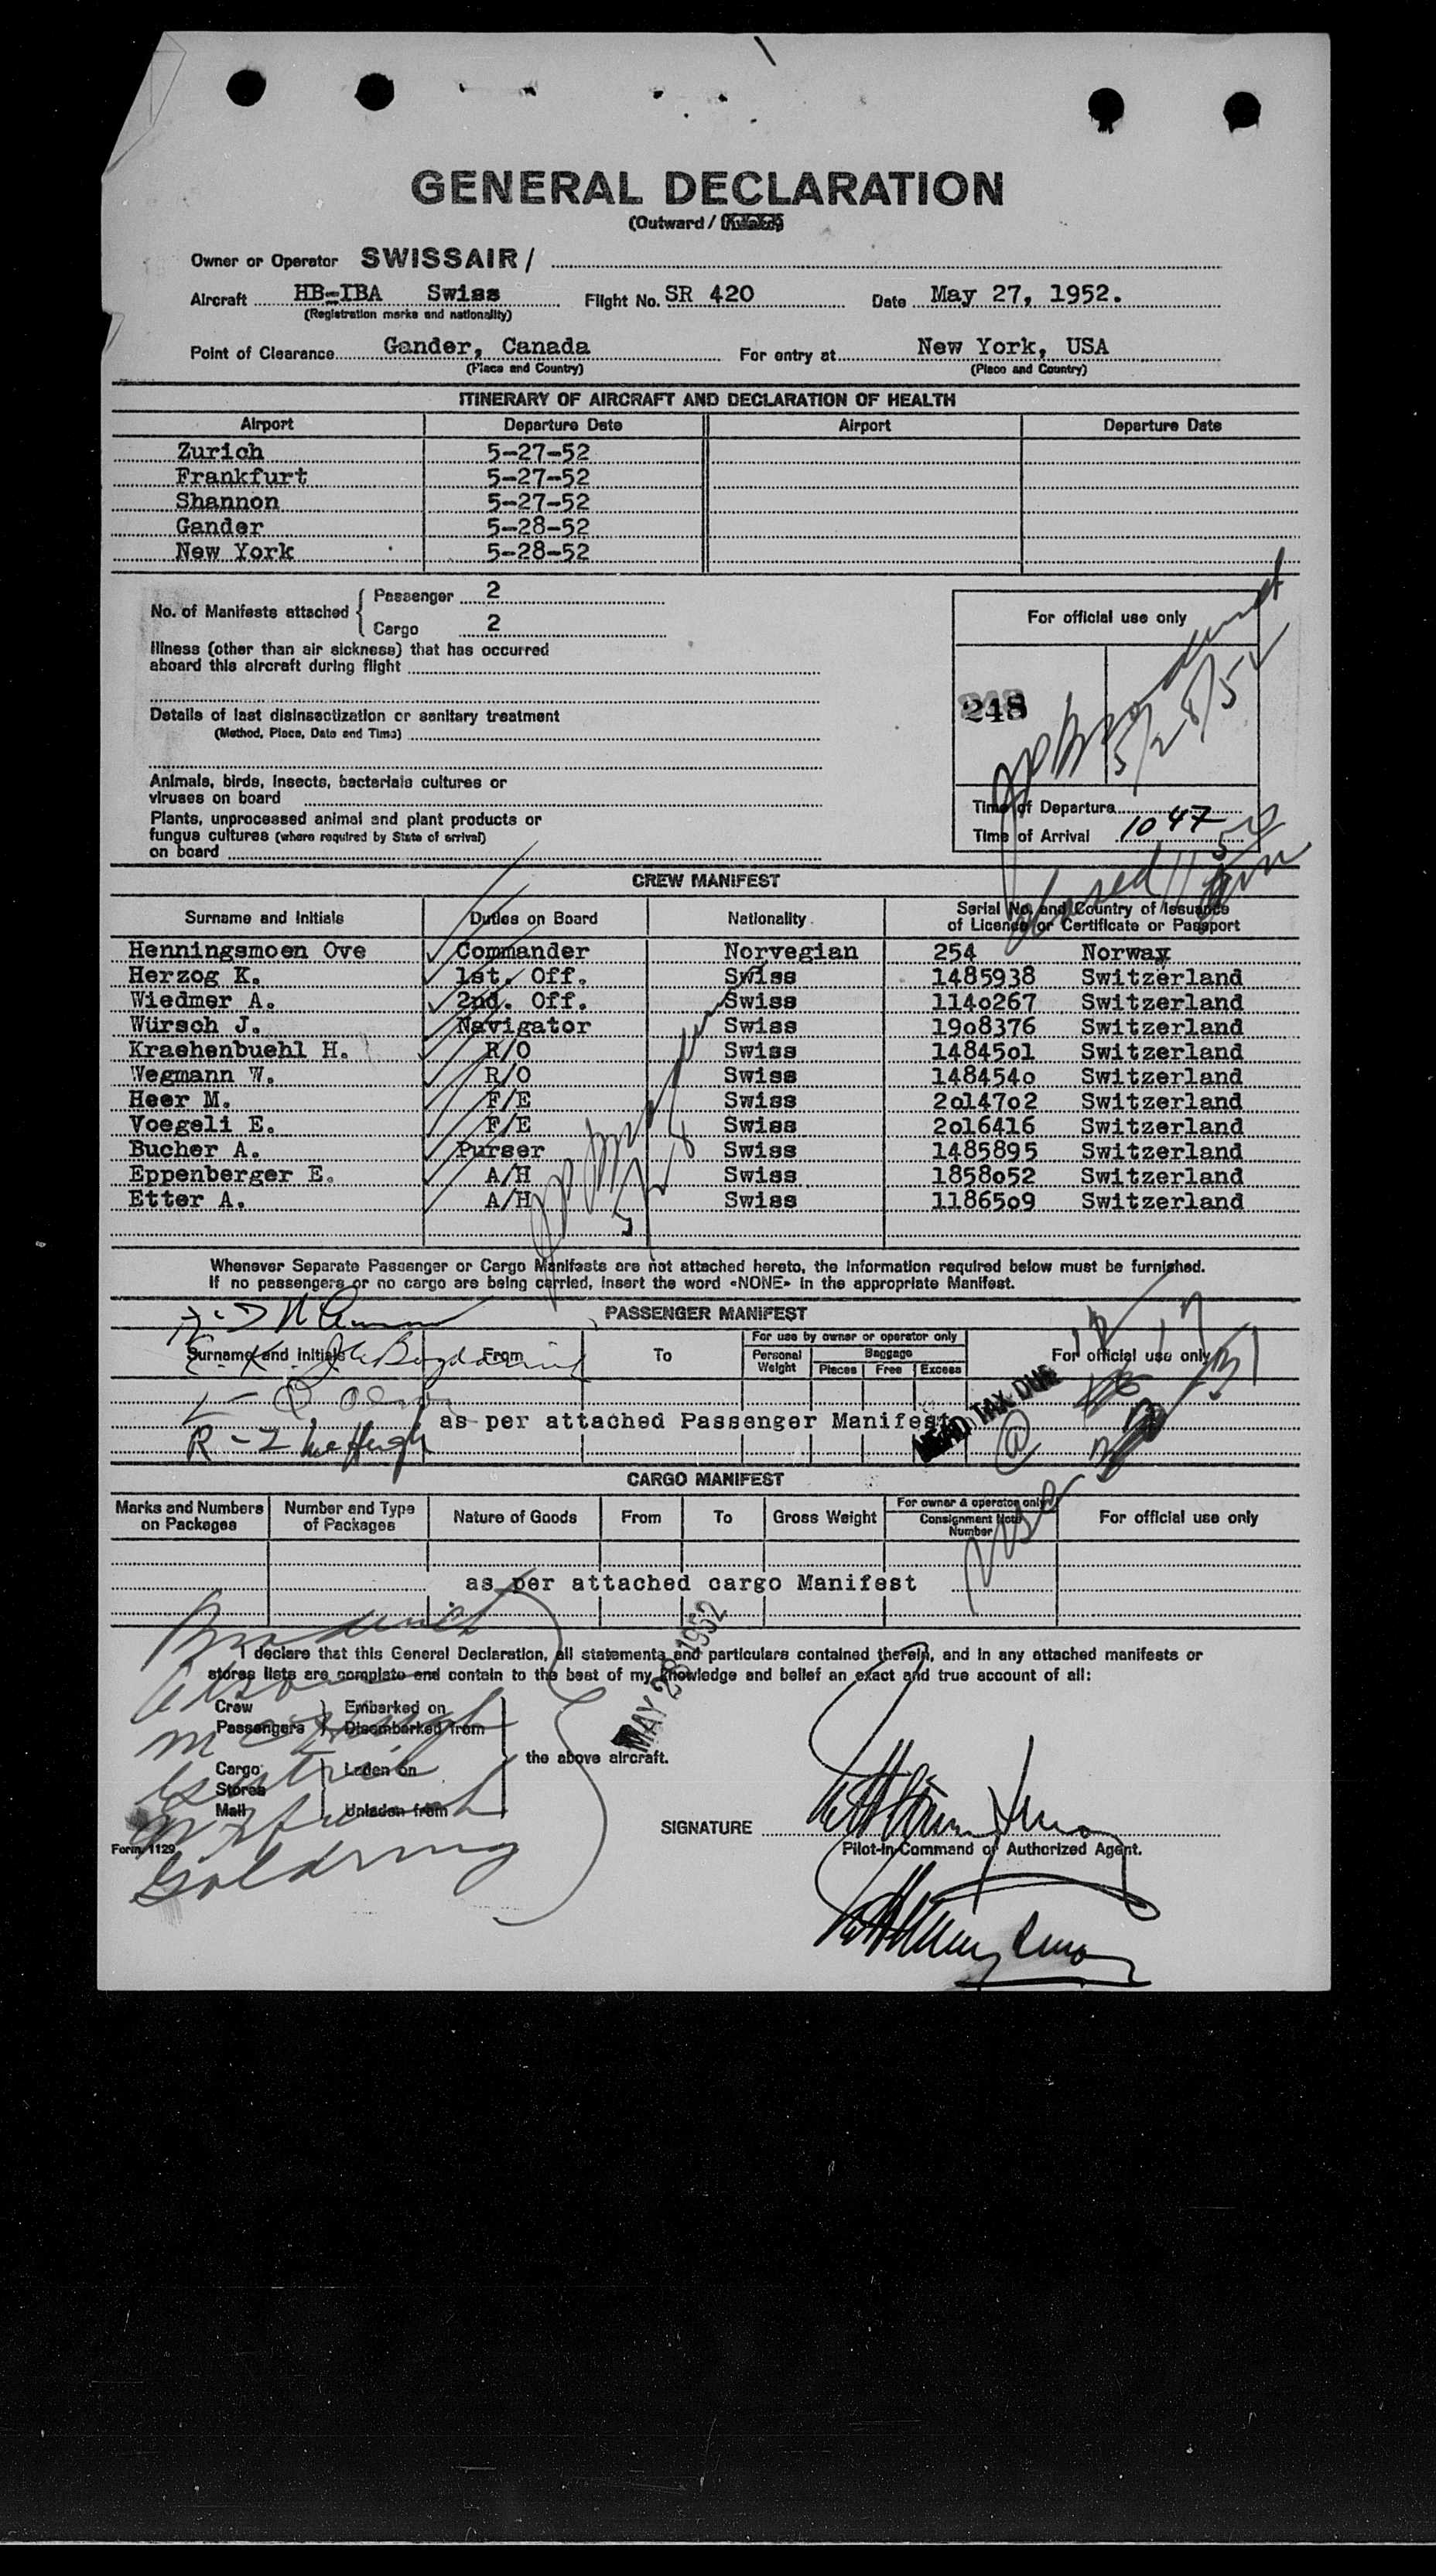 GENERAL DECLARATION
(Outward /
Owner or Operator SWISSAIR /
Aircraft HB-IBA Swiss Flight No. SR 420 Date May 27, 1952.
(Registration marks and nationality)
Point of Clearance Gander, Canada For entry at New York, USA
(Place and Country) (Place and Country)
ITINERARY OF AIRCRAFT AND DECLARATION OF HEALTH
Airport Departure Date Airport Departure Date
Zurich 5-27-52
Frankfurt 5-27-52
Shannon 5-27-52
Gander 5-28-52
New York 5-28-52
No. of Manifests attached { Passenger 2
Cargo 2
Illness (other than air sickness) that has occurred
aboard this aircraft during flight
Details of last disinsectization or sanitary treatment
(Method, Place, Date and Time)
Animals, birds, insects, bacterials cultures or
viruses on board
Plants, unprocessed animal and plant products or
fungus cultures (where required by State of arrival)
on board
For official use only
248
5/28/52
Time of Departure
Time of Arrival 1047
CREW MANIFEST
Surname and Initials Duties on Board Nationality Serial No. and Country of Issuance
of Licence or Certificate or Passport
Henningsmoen Ove Commander Norvegian 254 Norway
Herzog K. 1st. Off. Swiss 1485938 Switzerland
Wiedmer A. 2nd. Off. Swiss 1140267 Switzerland
Würsch J. Navigator Swiss 1908376 Switzerland
Kraehenbuehl H. R/O Swiss 1484501 Switzerland
Wegmann W. R/O Swiss 1484540 Switzerland
Heer M. F/E Swiss 2014702 Switzerland
Voegeli E. F/E Swiss 2016416 Switzerland
Bucher A. Purser Swiss 1485895 Switzerland
Eppenberger E. A/H Swiss 1858052 Switzerland
Etter A. A/H Swiss 1186509 Switzerland
Whenever Separate Passenger or Cargo Manifests are not attached hereto, the information required below must be furnished.
If no passengers or no cargo are being carried, insert the word «NONE» in the appropriate Manifest.
PASSENGER MANIFEST
Surname and Initials From To For use by owner or operator only For official use only
Personal Weight Baggage
Pieces Free Excess
HEAD TAX DUE
as per attached Passenger Manifest
CARGO MANIFEST
Marks and Numbers on Packages Number and Type of Packages Nature of Goods From To Gross Weight For owner & operator only Consignment Note Number For official use only
as per attached cargo Manifest
MAY 28 1952
I declare that this General Declaration, all statements and particulars contained therein, and in any attached manifests or
stores lists are complete and contain to the best of my knowledge and belief an exact and true account of all:
Crew } Embarked on
Passengers } Disembarked from
the above aircraft.
Cargo } Laden on
Stores
Mail } Unladen from
Goldring
SIGNATURE
Pilot-in-Command or Authorized Agent.
Form 1129